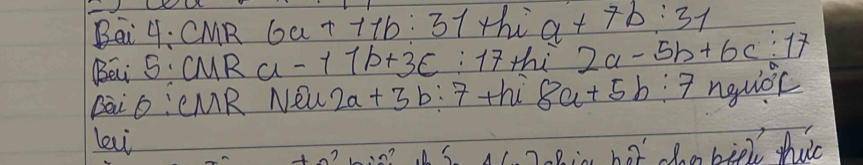 Bài 4: CMR 6a + 11b ⋮ 31 thì a + 7b ⋮ 31
Bài 5: CMR a - 11b + 3c ⋮ 17 thì 2a - 5b + 6c ⋮ 17
Bài 6: CMR Nếu 2a + 3b ⋮ 7 thì 8a + 5b ⋮ 7 người
lại
biểu thức